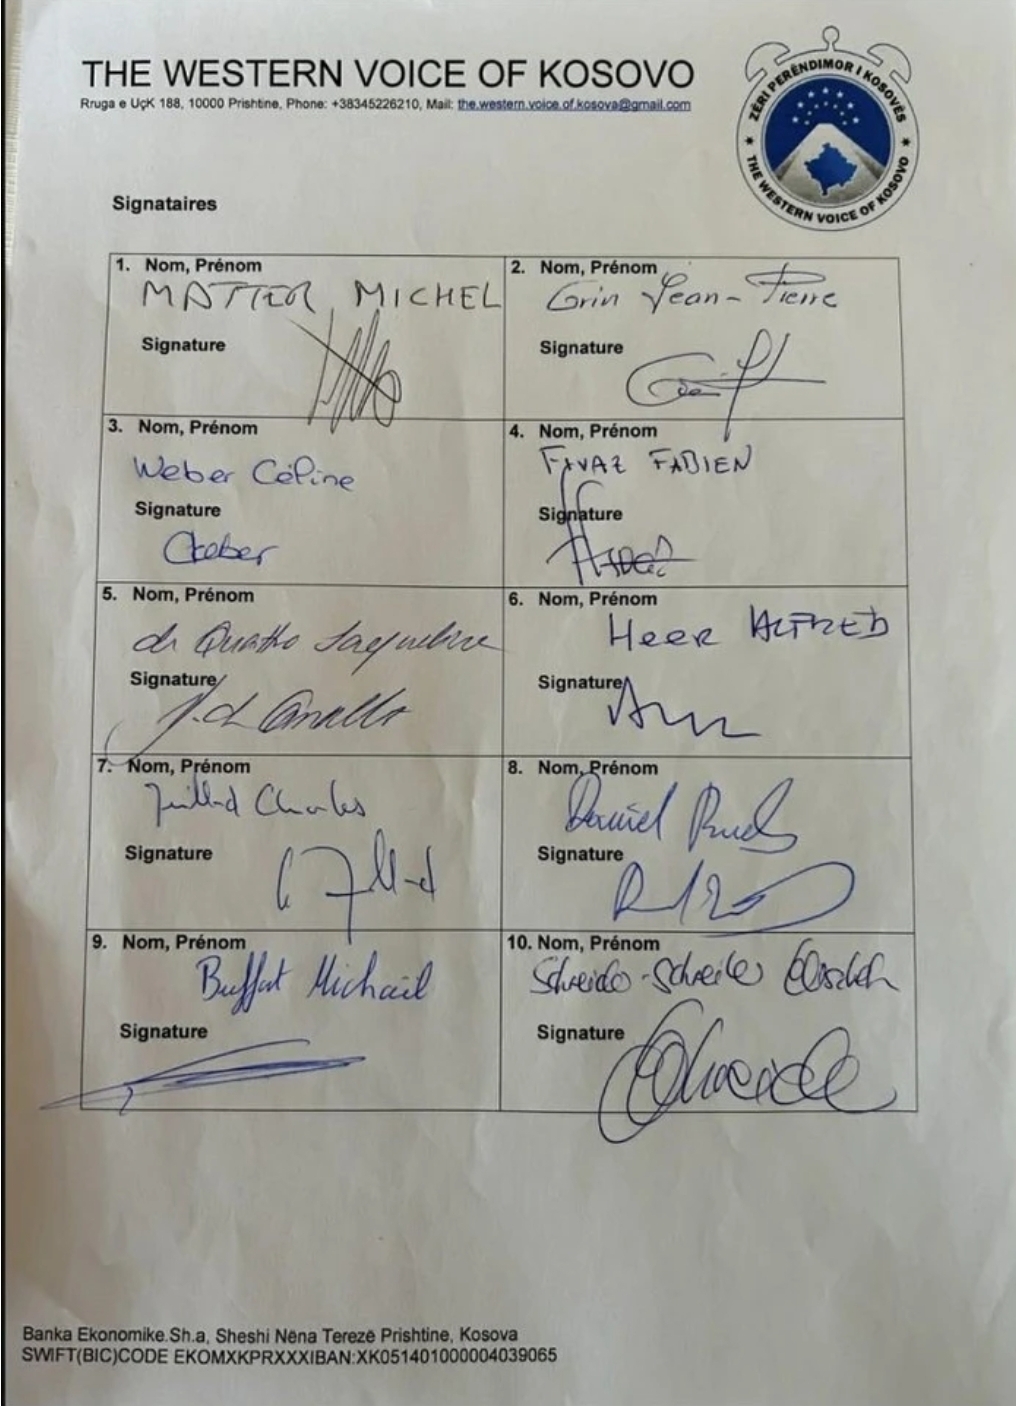 THE WESTERN VOICE OF KOSOVO
Rruga e UçK 188, 10000 Prishtine, Phone: +38345226210, Mail: the.western.voice.of.kosova@gmail.com
ZËRI PERËNDIMOR I KOSOVËS
* THE WESTERN VOICE OF KOSOVO *
Signataires
1. Nom, Prénom
MATTER, MICHEL
Signature
2. Nom, Prénom
Grin Jean-Pierre
Signature
3. Nom, Prénom
Weber Céline
Signature
CWeber
4. Nom, Prénom
FIVAZ FABIEN
Signature
5. Nom, Prénom
de Quattro Jacqueline
Signature
6. Nom, Prénom
Heer ALFRED
Signature
7. Nom, Prénom
Juillard Charles
Signature
8. Nom, Prénom
Daniel Ruch
Signature
9. Nom, Prénom
Buffat Michaël
Signature
10. Nom, Prénom
Signature
Banka Ekonomike.Sh.a, Sheshi Nëna Terezë Prishtine, Kosova
SWIFT(BIC)CODE EKOMXKPRXXXIBAN:XK051401000004039065